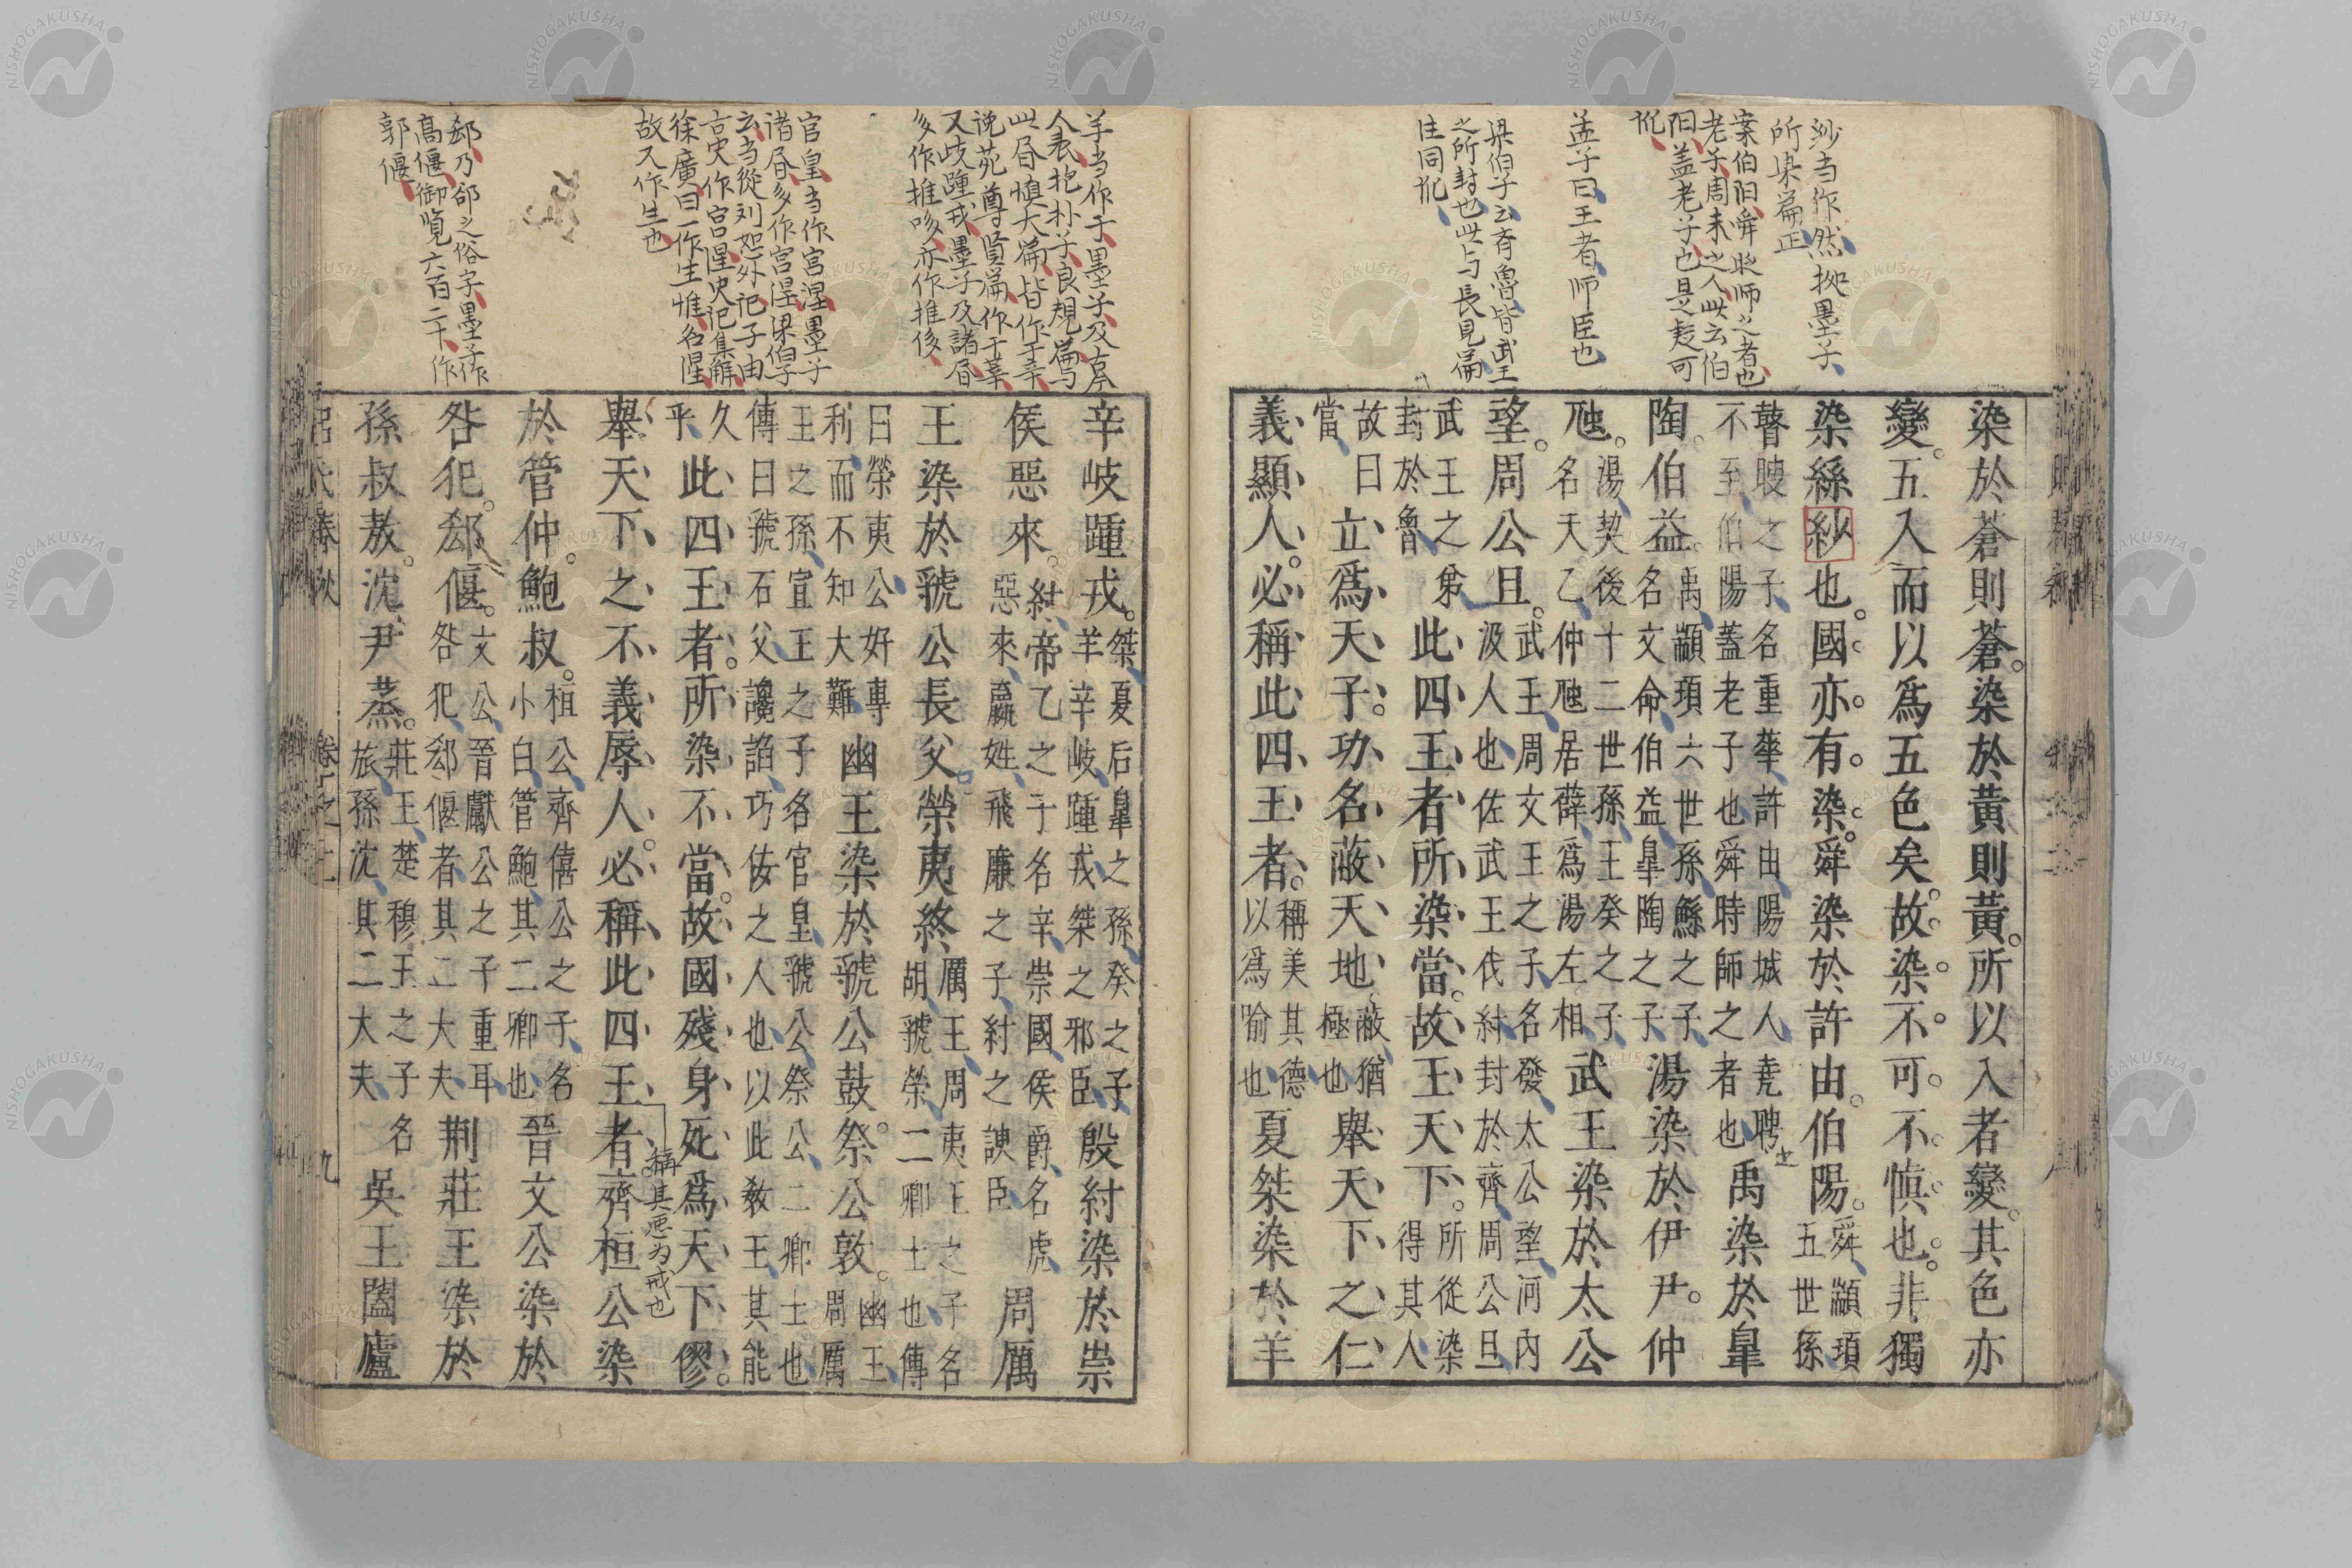 紗当作然拠墨子
所染篇正
案伯阳舜时师之者也
老子周末之人此云伯
阳盖老子也
孟子曰王者师臣也
梁伯子云斉魯皆武王
之所封也此与長見篇
注同
染於蒼則蒼。染於黃則黃。所以入者變。其色亦
變。五入而以爲五色矣。故染不可不慎也。非獨
染絲紗也。國亦有染。舜染於許由。伯陽。舜顓頊五世孫
瞽瞍之子名重華許由陽城人堯聘之不至伯陽蓋老子也舜時師之者也禹染於皐
陶伯益。禹顓頊六世孫鯀之子名文命伯益皐陶之子湯染於伊尹。仲
虺。湯契後十二世孫王癸之子名天乙仲虺居薛爲湯左相武王染於太公
望。周公旦。武王周文王之子名發太公望河內汲人也佐武王伐紂封於齊周公旦
武王之弟封於魯此四王者所染當。故王天下。所從染得其人
故曰當立爲天子。功名蔽天地蔽猶極也舉天下之仁
義顯人。必稱此四王者。稱美其德以爲喻也夏桀染於羊
羊当作于墨子及古今
人表抱朴子良規篇与
此㫪慎大篇皆作于辛
说苑尊贤篇作干莘
又歧踵戎墨子及諸㫪
多作推哆亦作推侈
官皇当作宫涅墨子
诸㫪多作宫涅梁伯子
云当從刘恕外记子由
古史作宫湦史记集解
徐廣曰一作生惟名湦
故又作生也
郄乃郤之俗字墨子作
高偃御覧六百二十作
郭偃
辛岐踵戎。桀夏后皐之孫癸之子羊辛岐踵戎桀之邪臣殷紂染於崇
侯惡來。紂帝乙之子名辛崇國侯爵名虎惡來嬴姓飛廉之子紂之諛臣周厲
王染於虢公長父榮夷終厲王周夷王之子名胡虢榮二卿士也傳
曰榮夷公好專利而不知大難幽王染於虢公鼓。祭公敦。幽王周厲
王之孫宣王之子名官皇虢公祭公二卿士也傳曰虢石父讒諂巧佞之人也以此敎王其能
久乎此四王者。所染不當。故國殘身死爲天下僇。
舉天下之不義辱人。必稱此四王者。稱其悪为戒也齊桓公染
於管仲。鮑叔。桓公齊僖公之子名小白管鮑其二卿也晉文公染於
咎犯。郄偃。文公晉獻公之子重耳咎犯郄偃者其二大夫荆莊王染於
孫叔敖。沈尹蒸。莊王楚穆王之子名旅孫沈其二大夫吳王闔廬
呂氏春秋
卷之二
九